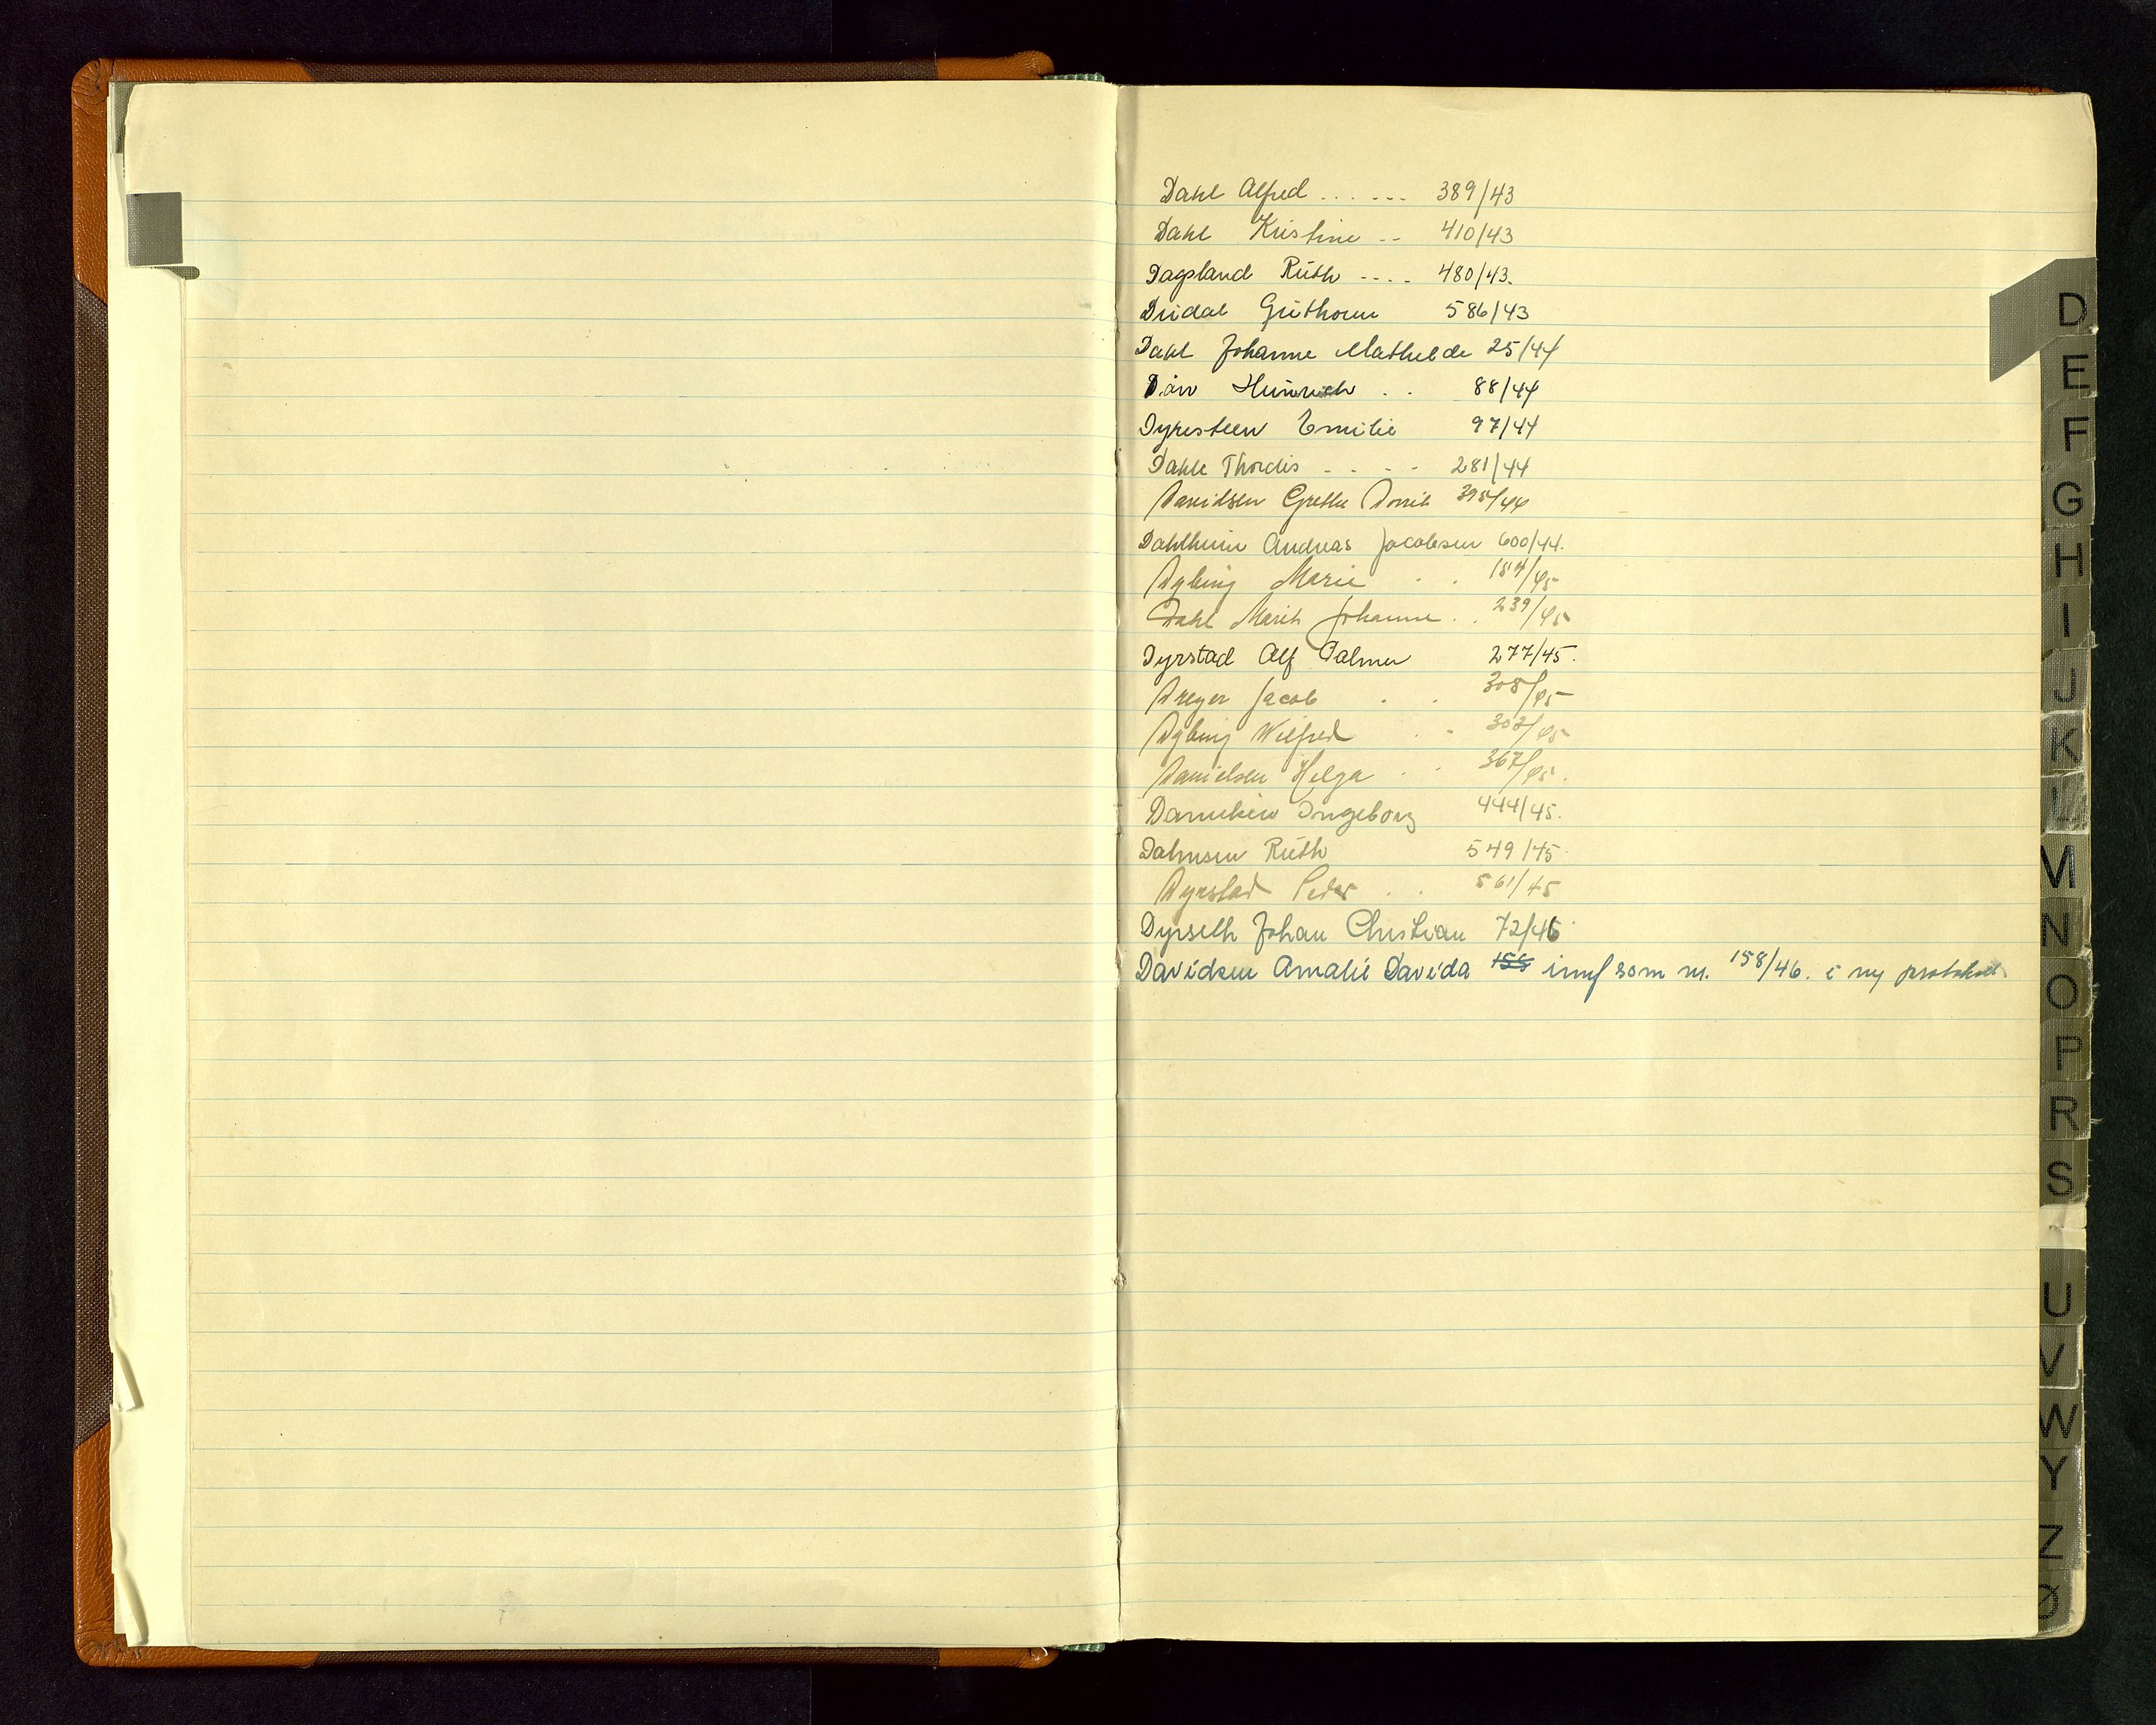 Dahl Alfred ...... 389/43
Dahl Kristine .. 410/43
Dagsland Ruth .... 480/43.
Dridal Guthorm 586/43
Dahl Johanne Mathilde 25/44
Heinrich . . 88/44
Dyresteen Emilie 97/44
Dahle Thordis . . . . 281/44
Davidsen Grethe Dorrit 395/44
Dahlheim Andreas Jacobsen 600/44.
Dybing Marie . . 187/45
Dahl Marit Johanne . . 239/45
Dyrstad Alf Palmer 277/45.
Dreyer Jacob . . 305/45
Dybing Wilfred . . 303/45
Danielsen Helga . . 367/45.
Ingeborg 444/45.
Dahnsen Ruth 549/45
Dyrstad Peder . . 561/45
Dyrseth Johan Christian 72/46
Davidsen Amalie Davida innf som nr. 158/46. i ny protokoll
D
E
F
G
H
I
J
K
L
M
N
O
P
R
S
U
V
W
Y
Z
Ø